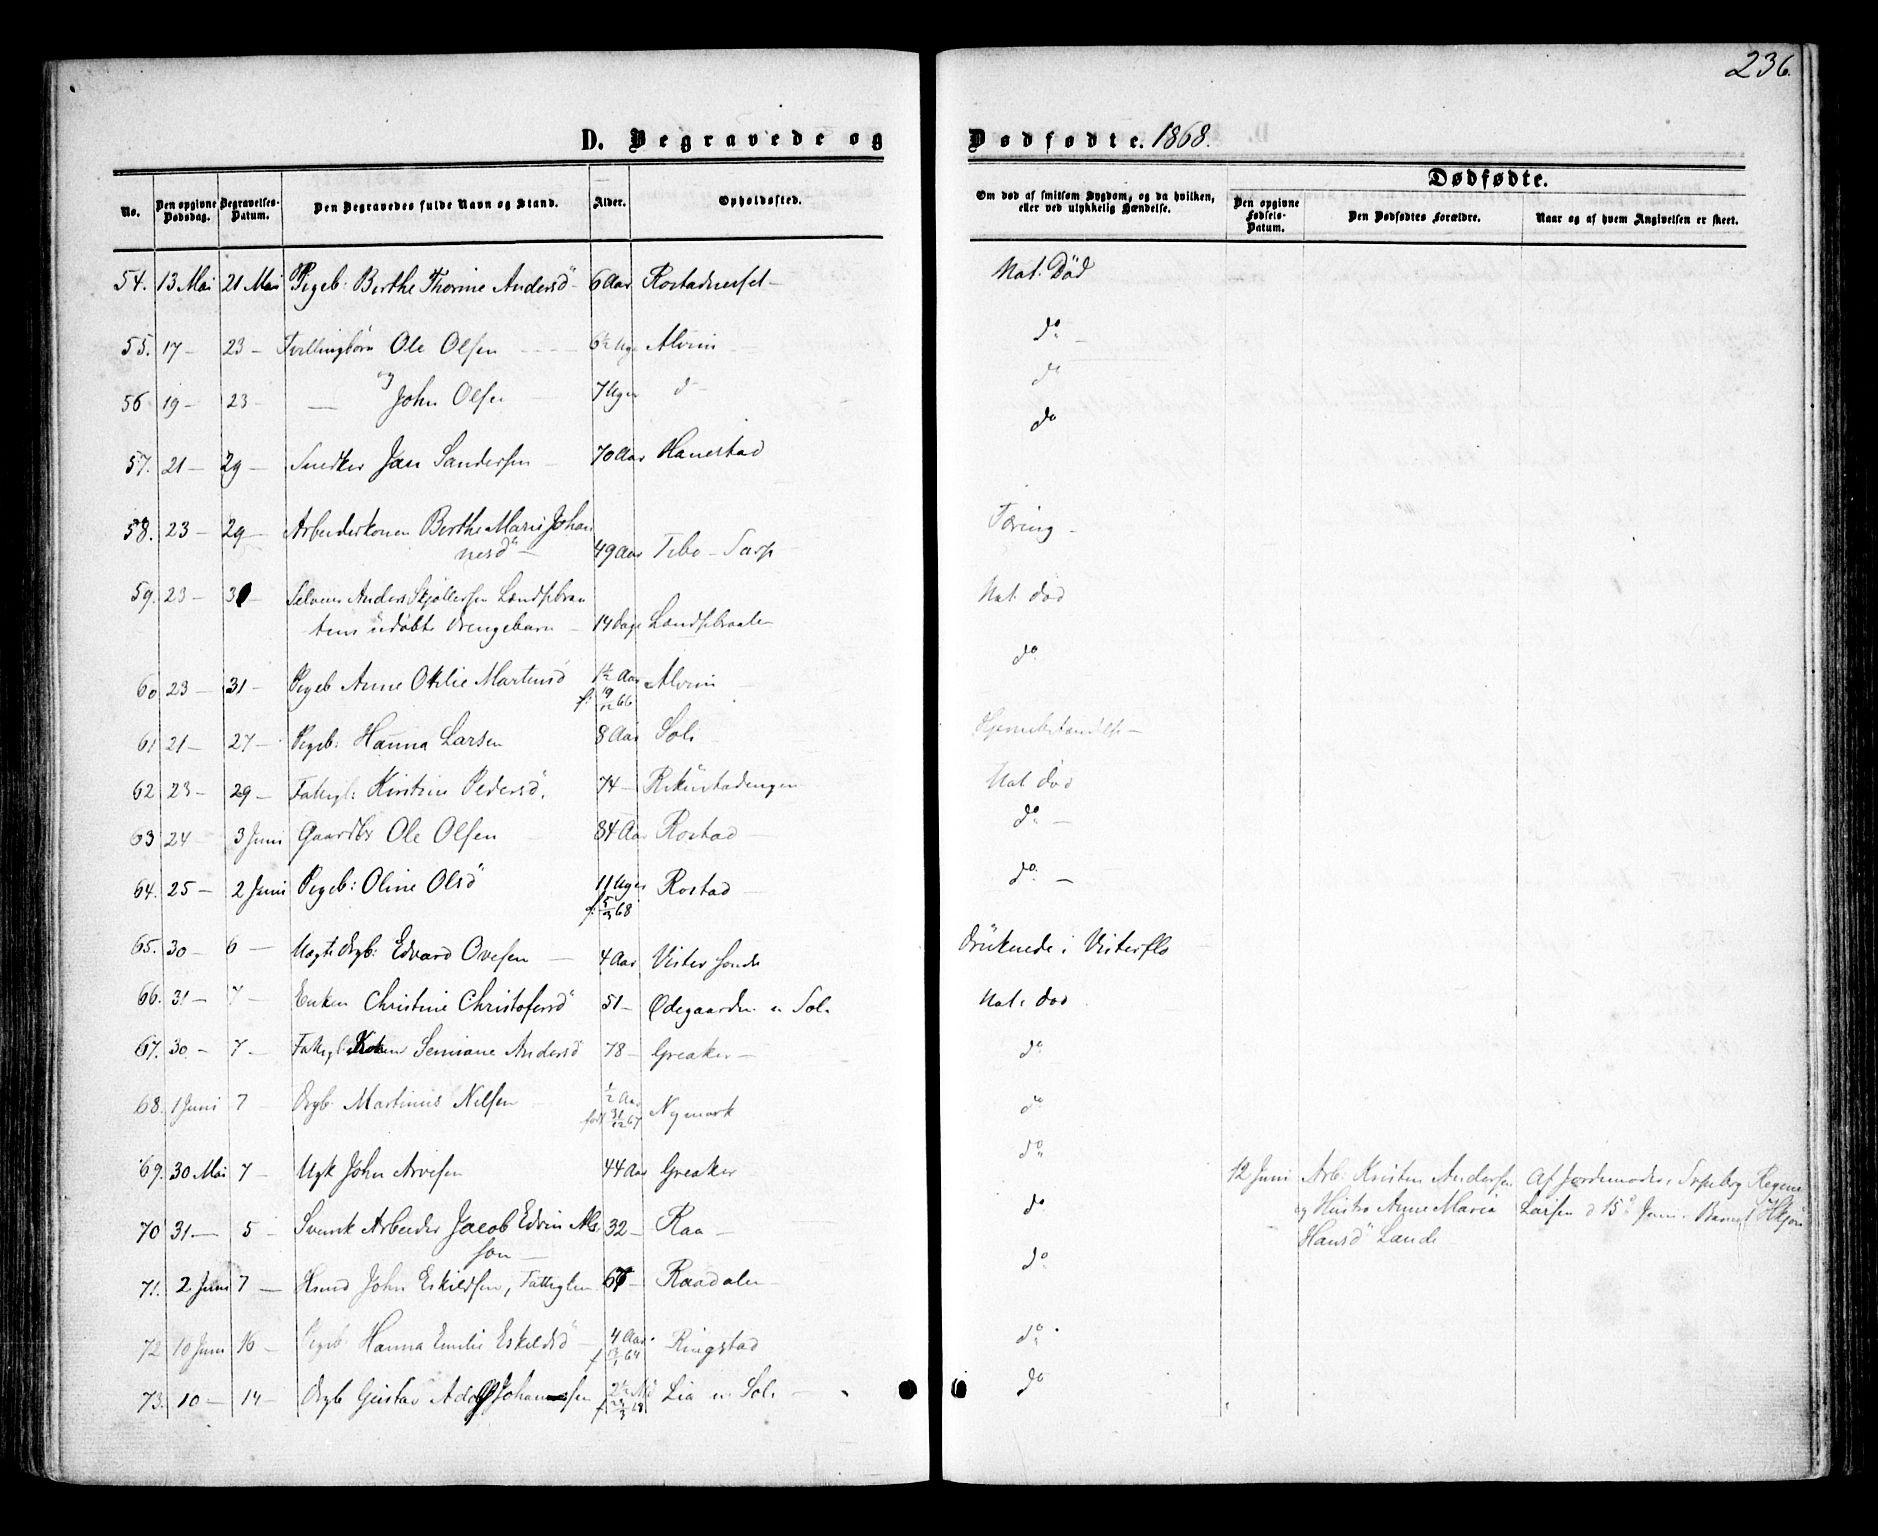 236.
D. Begravede og Dødfødte. 1868.
No. Den opgivne Dødsdag. Begravelses-Datum. Den Begravedes fulde Navn og Stand. Alder. Opholdssted. Om død af smitsom Sygdom, og da hvilken, eller ved ulykkelig Hændelse. Dødfødte. Den opgivne Fødsels-Datum. Den Dødfødtes Forældre. Naar og af hvem Angivelsen er skeet.
54. 13 Mai 21 Mai Pigeb: Berthe Thorine Andersd 6 Aar Rostadnesset Nat. Död
55. 17 - 23 - Tvillingbörn Ole Olsen 6½ Uge Alvim do
56 19 - 23 - og John Olsen 7 Uger d do
57. 21 - 29 - Snedker Jan Sandersen 70 Aar Hanestad do
58. 23 - 29 - Arbeiderkonen Berthe Marie Johan
nesd - 49 Aar Tebo - Sarp Tæring -
59. 23 - 31 - Selveier Anders Skjöllersen Landsbraa
tens udöbte Drengebarn - 14 Dage Landsbraaten Nat. död
60 23 - 31 - Pigeb Anne Otilie Martinsd 1½ Aar Alvim do
f. 19/12 66
61 21 - 27 - Pigeb: Hanna Larsen 8 Aar Soli Hjernebetændelse -
62 23 - 29 - Fattigl: Kirstine Pedersd. 74 - Nat död
63 24 3 Juni Gaardbr Ole Olsen 84 Aar Rostad do -
64. 25 - 2 Juni Pigeb: Oline Olsd 11 Uger Rostad do. -
f. 5/3 68
65. 30 - 6 - Uægte Drgb: Edvard Ovesen 4 Aar Visterfonde Druknede i Visterflo
66. 31 - 7 - Enken Christine Christofersd 51 - Ødegaarden u Soli Nat. död
67. 30 - 7 - Fattigl Semiane Andersd 78 - Greaker - do
68. 1 Juni 7 Drgb. Martinus Nilsen ½ Aar Nymark do
född 31/12 67
69. 30 Mai 7 - Ugk John Arvesen 44 Aar Greaker do
12 Juni Arb: Kristen Andersen Af Jordemoder Regine
og Hustro Anne Maria Larsen d 15de Juni.
Hansd Lande
70 31 - 5 - Svensk Arbeider Jacob Edvin Als
son - 32 - Raa - do
71. 2 Juni 7 - Knud John Eskildsen, Fattiglem 67 - Raadalen - do
72 10 Juni 16 - Pigeb Hanna Emilie Eskeldsd - 4 Aar Ringstad do
73. 10 - 14 - Drgb Gustav Adolf Johannesen 2½ Md Lia u. Soli - do